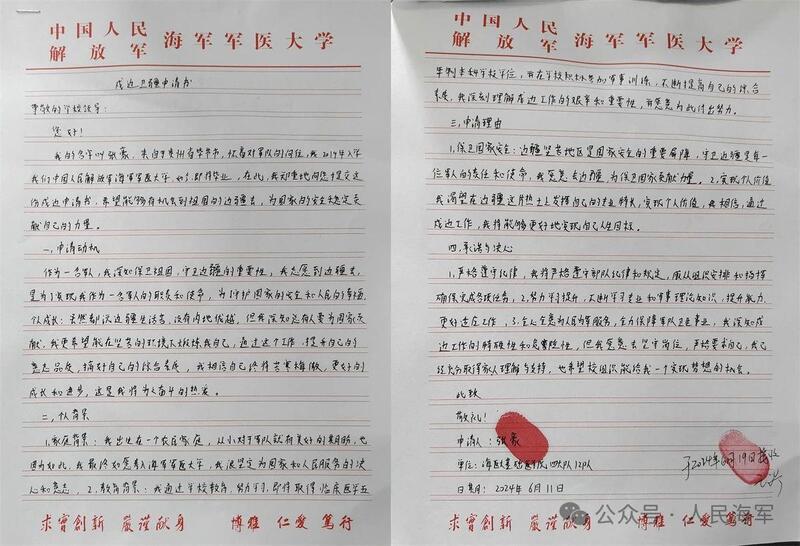 中国人民
解放军 海军军医大学
戍边卫疆申请书
尊敬的学校领导：
您好！
我的名字叫张豪，来自于贵州省毕节市，怀着对军队的向往，我2019年入学
我们中国人民解放军海军军医大学，如今即将毕业，在此，我郑重地向您提交这
份戍边申请书，希望能够有机会到祖国的边疆去，为国家的安全稳定贡
献自己的力量。
一、申请动机
作为一名军人，我深知保卫祖国，守卫边疆的重要性，我志愿到边疆去，
是为了实现我作为一名军人的职责和使命，为守护国家的安全和人民的幸福，
个人成长：虽然到边疆生活苦，没有内地优越，但我深知总有人要为国家贡
献，我更希望能在坚苦的环境下锻炼我自己，通过这个工作，提升自己的
意志品质，搞好自己的综合素质，我相信自己终将苦寒梅傲，更好的
成长和进步，这是我将为之奋斗的热爱。
二、个人背景
1.家庭背景：我出生在一个农民家庭，从小对军队就有美好的期盼，也
因为如此，我最终如愿考入海军军医大学，我渴望定为国家和人民服务的决
心和意志，2.教育背景：我通过学校教育，努力学习，即将取得临床医学五
年制本科学校学位，而在学校积极参加军事训练，不断提高自己的综合
素质，我深刻理解戍边工作的艰辛和重要性，并愿意为此付出努力。
三、申请理由
1.保卫国家安全：边疆坚苦地区是国家安全的重要屏障，守卫边疆是每一
位军人的责任和使命，我愿意去边疆，为保卫国家贡献力量。2.实现个人价值
我渴望在边疆这片热土上发挥自己的专业特长，实现个人价值，我相信，通过
戍边工作，我将能够更好地实现自己人生目标。
四、承诺与决心
1.严格遵守纪律，我将严格遵守部队纪律和规定，服从组织安排和指挥
确保完成各项任务；2.努力学习提升，不断学习专业和军事理论知识，提升能力，
更好适应工作；3.全心全意为人民为军服务，全力保障军队卫生事业，我深知戍
边工作的特殊性和危险性，但我愿意去坚守岗位，严格要求自己，我已
经充分取得家人理解与支持，也希望组织能给我一个实现梦想的机会。
此致
敬礼！
申请人：张豪
单位：海医大基础医学院四大队12队
日期：2024年6月11日
于2024年6月19日接收
求实创新 严谨献身 博雅 仁爱 笃行
求实创新 严谨献身 博雅 仁爱 笃行
公众号·人民海军